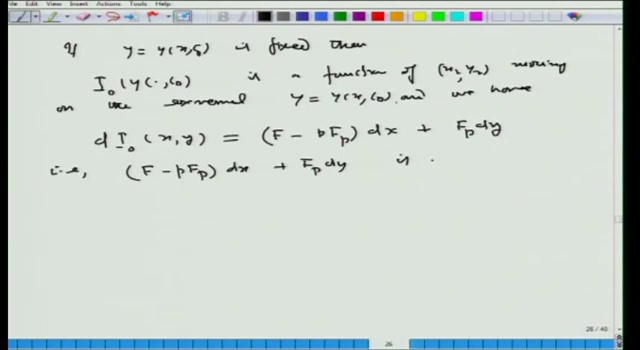 File View Insert Actions Tools Help
If y = y(x, c₀) is fixed then
I₀(y(·, c₀) is a function of (x₂, y₂) moving
on the extremal y = y(x, c₀) and we have
d I₀(x, y) = (F - pFₚ) dx + Fₚ dy
i.e, (F - pFₚ) dx + Fₚ dy is
26 / 40
26